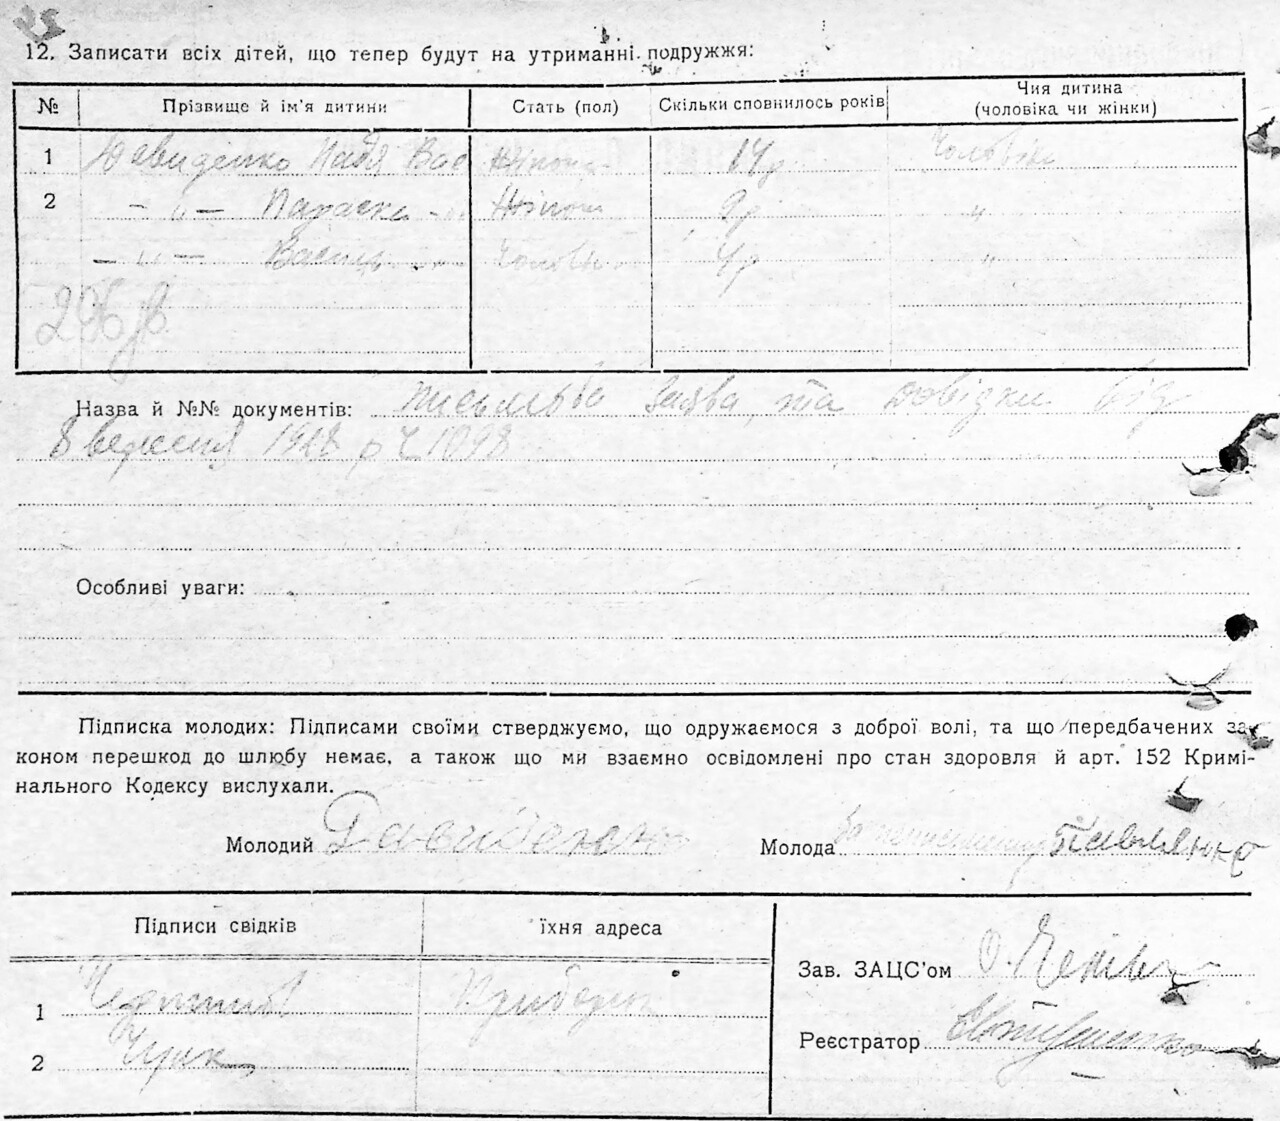 12. Записати всіх дітей, що тепер будут на утриманні подружжя:
№ Прізвище й ім'я дитини Стать (пол) Скільки сповнилось років Чия дитина (чоловіка чи жінки)
1 Давиденко Надя Вас Жіноча 14 р Чоловіка
2 – " – Параска – " Жіноч 9 р "
– " – Василь " Чолов. 4 р "
296
Назва й №№ документів: письмова заява, та довідки від
8 вересня 1928 р Ч 1098
Особливі уваги:
Підписка молодих: Підписами своїми стверджуємо, що одружаємося з доброї волі, та що передбачених за-
коном перешкод до шлюбу немає, а також що ми взаємно освідомлені про стан здоровля й арт. 152 Кримі-
нального Кодексу вислухали.
Молодий Давиденко Молода Павленко
Підписи свідків їхня адреса
Зав. ЗАЦС'ом О.
1
Реєстратор Євтушенко
2